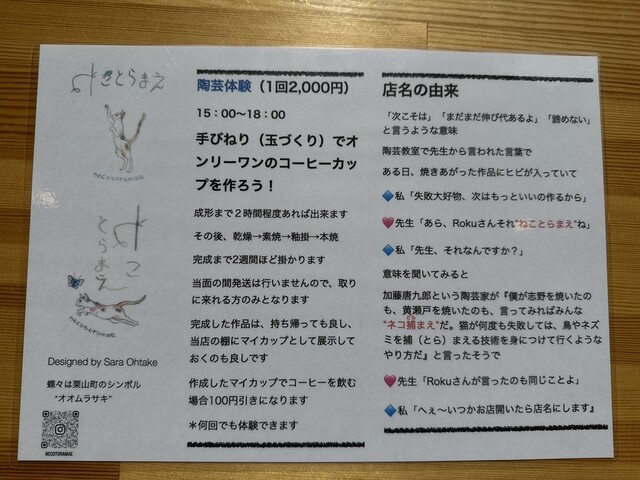 ねことらまえ
necotoramae
ねこ
とらまえ
necotoramae
Designed by Sara Ohtake
蝶々は栗山町のシンボル
“オオムラサキ”
NECOTORAMAE
陶芸体験（1回2,000円）
15：00～18：00
手びねり（玉づくり）でオ
ンリーワンのコーヒーカッ
プを作ろう！
成形まで２時間程度あれば出来ます
その後、乾燥→素焼→釉掛→本焼
完成まで2週間ほど掛かります
当面の間発送は行いませんので、取り
に来れる方のみとなります
完成した作品は、持ち帰っても良し、
当店の棚にマイカップとして展示して
おくのも良しです
作成したマイカップでコーヒーを飲む
場合100円引きになります
＊何回でも体験できます
店名の由来
「次こそは」「まだまだ伸び代あるよ」「諦めない」
と言うような意味
陶芸教室で先生から言われた言葉で
ある日、焼きあがった作品にヒビが入っていて
🔷私「失敗大好物、次はもっといいの作るから」
💗先生「あら、Rokuさんそれ“ねことらまえ”ね」
🔷私「先生、それなんですか？」
意味を聞いてみると
加藤唐九郎という陶芸家が『僕が志野を焼いたの
も、黄瀬戸を焼いたのも、言ってみればみんな
“ネコ捕まえ”だ。猫が何度も失敗しては、鳥やネズ
ミを捕（とら）まえる技術を身につけて行くような
やり方だ』と言ったそうで
💗先生「Rokuさんが言ったのも同じことよ」
🔷私「へぇ～いつかお店開いたら店名にします』